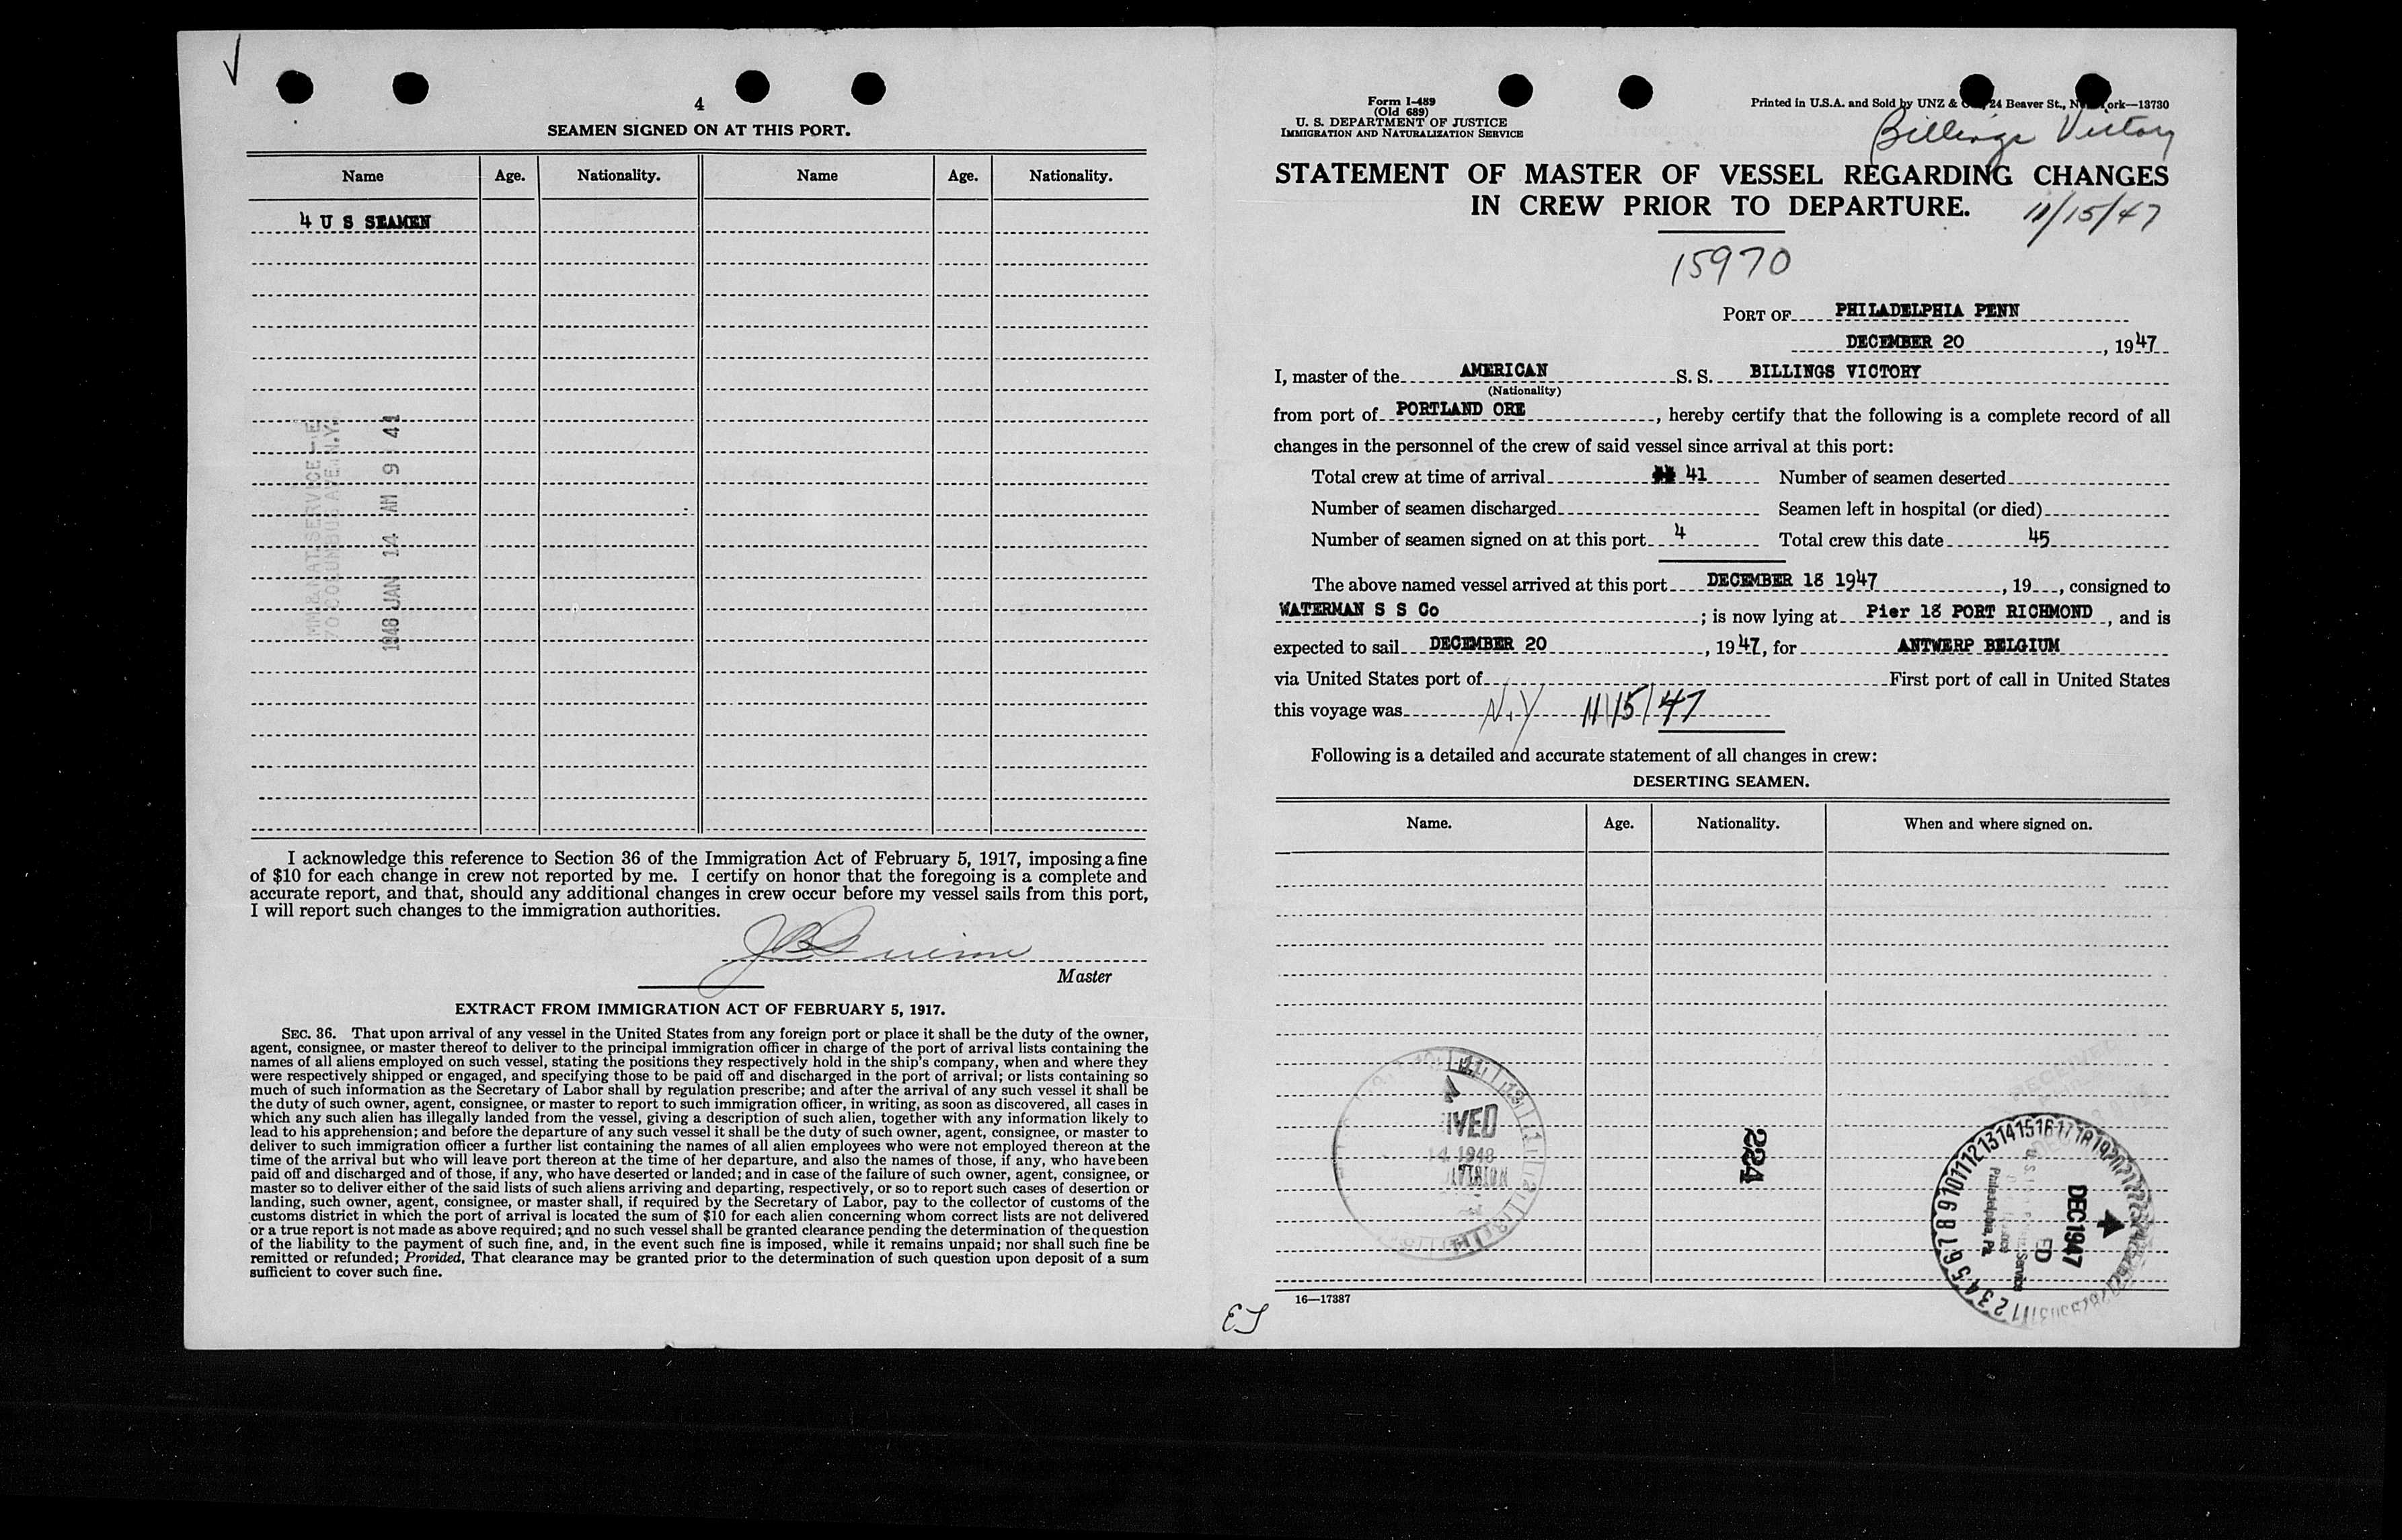 4
SEAMEN SIGNED ON AT THIS PORT.
Name Age. Nationality. Name Age. Nationality.
4 U S SEAMEN
1948 JAN 14 AM 9 41
I acknowledge this reference to Section 36 of the Immigration Act of February 5, 1917, imposing a fine
of $10 for each change in crew not reported by me. I certify on honor that the foregoing is a complete and
accurate report, and that, should any additional changes in crew occur before my vessel sails from this port,
I will report such changes to the immigration authorities.
Master
EXTRACT FROM IMMIGRATION ACT OF FEBRUARY 5, 1917.
SEC. 36. That upon arrival of any vessel in the United States from any foreign port or place it shall be the duty of the owner,
agent, consignee, or master thereof to deliver to the principal immigration officer in charge of the port of arrival lists containing the
names of all aliens employed on such vessel, stating the positions they respectively hold in the ship's company, when and where they
were respectively shipped or engaged, and specifying those to be paid off and discharged in the port of arrival; or lists containing so
much of such information as the Secretary of Labor shall by regulation prescribe; and after the arrival of any such vessel it shall be
the duty of such owner, agent, consignee, or master to report to such immigration officer, in writing, as soon as discovered, all cases in
which any such alien has illegally landed from the vessel, giving a description of such alien, together with any information likely to
lead to his apprehension; and before the departure of any such vessel it shall be the duty of such owner, agent, consignee, or master to
deliver to such immigration officer a further list containing the names of all alien employees who were not employed thereon at the
time of the arrival but who will leave port thereon at the time of her departure, and also the names of those, if any, who have been
paid off and discharged and of those, if any, who have deserted or landed; and in case of the failure of such owner, agent, consignee, or
master so to deliver either of the said lists of such aliens arriving and departing, respectively, or so to report such cases of desertion or
landing, such owner, agent, consignee, or master shall, if required by the Secretary of Labor, pay to the collector of customs of the
customs district in which the port of arrival is located the sum of $10 for each alien concerning whom correct lists are not delivered
or a true report is not made as above required; and no such vessel shall be granted clearance pending the determination of the question
of the liability to the payment of such fine, and, in the event such fine is imposed, while it remains unpaid; nor shall such fine be
remitted or refunded; Provided, That clearance may be granted prior to the determination of such question upon deposit of a sum
sufficient to cover such fine.
Form I-489
(Old 689)
U. S. DEPARTMENT OF JUSTICE
IMMIGRATION AND NATURALIZATION SERVICE
Printed in U.S.A. and Sold by UNZ & 24 Beaver St., ork—13730
Billings Victory
STATEMENT OF MASTER OF VESSEL REGARDING CHANGES
IN CREW PRIOR TO DEPARTURE.
11/15/47
15970
PORT OF PHILADELPHIA PENN
DECEMBER 20, 1947
I, master of the AMERICAN S. S. BILLINGS VICTORY
(Nationality)
from port of PORTLAND ORE, hereby certify that the following is a complete record of all
changes in the personnel of the crew of said vessel since arrival at this port:
Total crew at time of arrival 41 Number of seamen deserted
Number of seamen discharged Seamen left in hospital (or died)
Number of seamen signed on at this port 4 Total crew this date 45
The above named vessel arrived at this port DECEMBER 18 1947, 19, consigned to
WATERMAN S S Co; is now lying at Pier 18 PORT RICHMOND, and is
expected to sail DECEMBER 20, 1947, for ANTWERP BELGIUM
via United States port of First port of call in United States
this voyage was N.Y 11/15/47
Following is a detailed and accurate statement of all changes in crew:
DESERTING SEAMEN.
Name. Age. Nationality. When and where signed on.
224
DEC 1947
Philadelphia, Pa.
16—17387